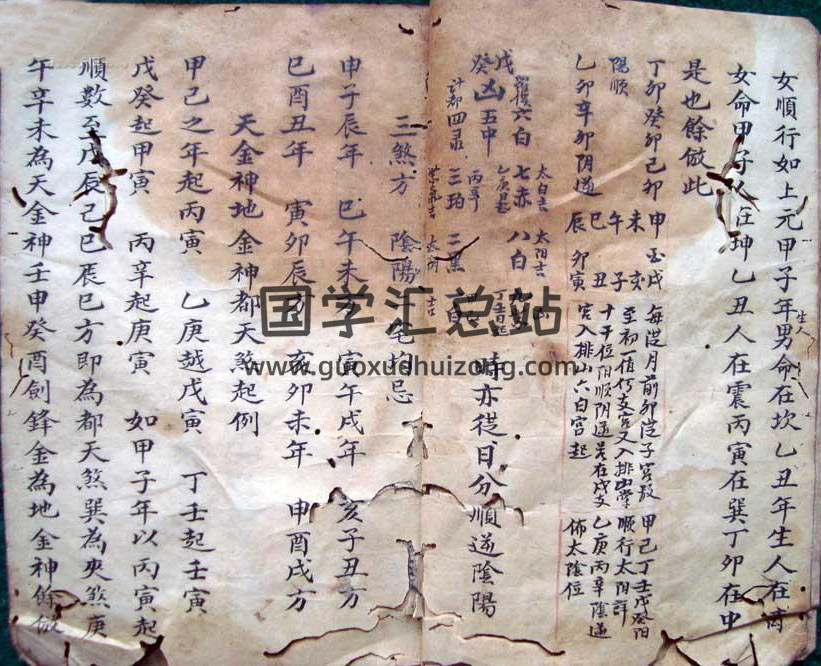 女順行如上元甲子年男命在坎乙丑年生人在离
女命甲子人在坤乙丑人在震丙寅在巽丁卯在中
是也餘倣此
丁卯癸卯己卯
陽順
乙卯辛卯阴逆
申 未 午 巳 辰
戌 亥 子 丑 寅 卯
每從月前卯從子宮数
至初一值何支宮又入排山掌
十干位阳順阴逆
宮入排山六白宮起
甲己丁壬戊癸阳
順行太阳詳
乙庚丙辛陰逆
佈太陰位
太白吉 太阳吉
羅睺六白 七赤 八白
戊癸凶五中
計都四录 三珀 二黑 白
丙辛
時亦從日分順逆陰陽
三煞方 陰陽宅均忌
申子辰年 巳午未方 寅午戌年 亥子丑方
巳酉丑年 寅卯辰方 亥卯未年 申酉戌方
天金神地金神都天煞起例
甲己之年起丙寅 乙庚越戊寅 丁壬起壬寅
戊癸起甲寅 丙辛起庚寅 如甲子年以丙寅起
順數至戊辰己巳辰巳方即為都天煞巽為夾煞庚
午辛未為天金神壬申癸酉劍鋒金為地金神餘倣
国学汇总站
www.guoxuehuizong.com